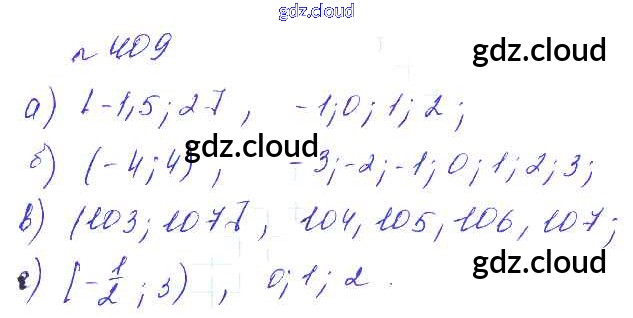 gdz.cloud
№409
gdz.cloud
а) [-1,5; 2], -1; 0; 1; 2;
gdz.cloud
б) (-4; 4), -3; -2; -1; 0; 1; 2; 3;
в) (103; 107], 104, 105, 106, 107;
gdz.cloud
г) [-1/2; 3), 0; 1; 2.